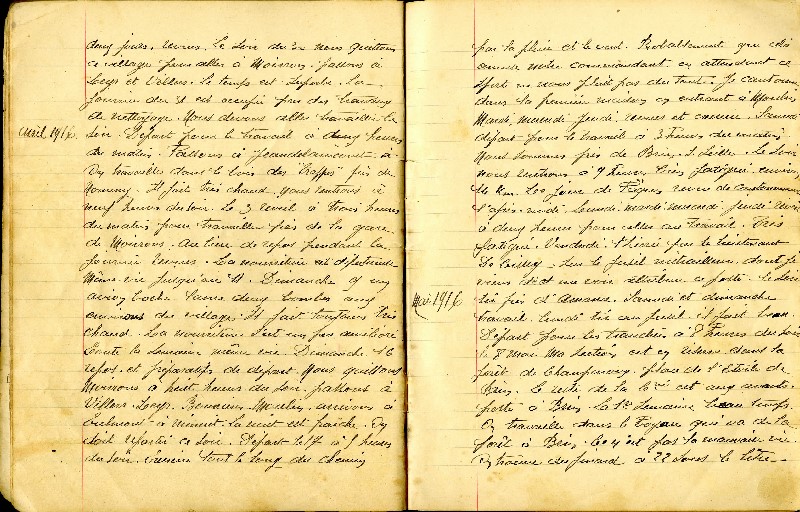 deux jours, revue. Le soir du 30 nous quittons
ce village pour aller à Moivron. passons à
Leyr et Villers. Le temps est superbe. La
journée du 31 est occupée par des travaux
de nettoyage. Nous devons aller travailler le
Avril 1916. soir. Départ pour le travail à deux heures
du matin. Passons à Jeandelaincourt. à
On travaille dans le bois des "Trappes" près de
Nomeny. Il fait très chaud. nous rentrons à
neuf heures du soir. Le 3 réveil à trois heures
du matin pour travailler près de la gare
de Moivrons. Au lieu de repos pendant la
journée revues. La nourriture est défectueuse
Même vie jusqu'au 9. Dimanche 9 un
avion boche lance deux bombes aux
environs du village. Il fait toujours très
chaud. La nourriture s'est un peu améliorée
Toute la semaine même vie. Dimanche 16
repos. et préparatifs de départ. Nous quittons
Moivrons à huit heures du soir. passons à
Villers, Leyr, Bouxières, Moulin, arrivons à
à minuit. la nuit est fraîche. On
doit repartir ce soir. Départ le 17 à 8 heures
du soir. tout le long du chemin
par la pluie et le vent. Probablement que cela
amuse notre commandant en attendant ce
sport ne nous plait pas du tout. Je cantonne
dans la première maison en entrant à Moulin
Mardi, mercredi jeudi, revues et comme. Samedi
départ pour le travail à 3 heures du matin.
Nous sommes près de Brin s. Seille. Le soir
nous rentrons à 9 heures très fatigués, environ
40 Km. Le jour de Pâques revue de cantonnement
l'après-midi. Lundi mardi mercredi jeudi
à deux heures pour aller au travail. Très
fatigué. Vendredi théorie par le lieutenant
sur le fusil mitrailleur dont je
viens d'être attribué ce poste. Le soir
tir près d'Amance. Samedi et dimanche
Mai 1916 travail. Lundi tir au fusil. il fait beau.
Départ pour les tranchées à 8 heures du soir
le 8 Mai. Ma section est en réserve dans la
forêt de Champenoux, place de l'Etoile de
Brin. Le reste de la Cie est aux avants-
poste à Brin. la 1re semaine beau temps.
On travaille dans le boyau qui va de la
forêt à Brin. Ce n'est pas la mauvaise vie
On trouve du pinard à 22 sous le litre.